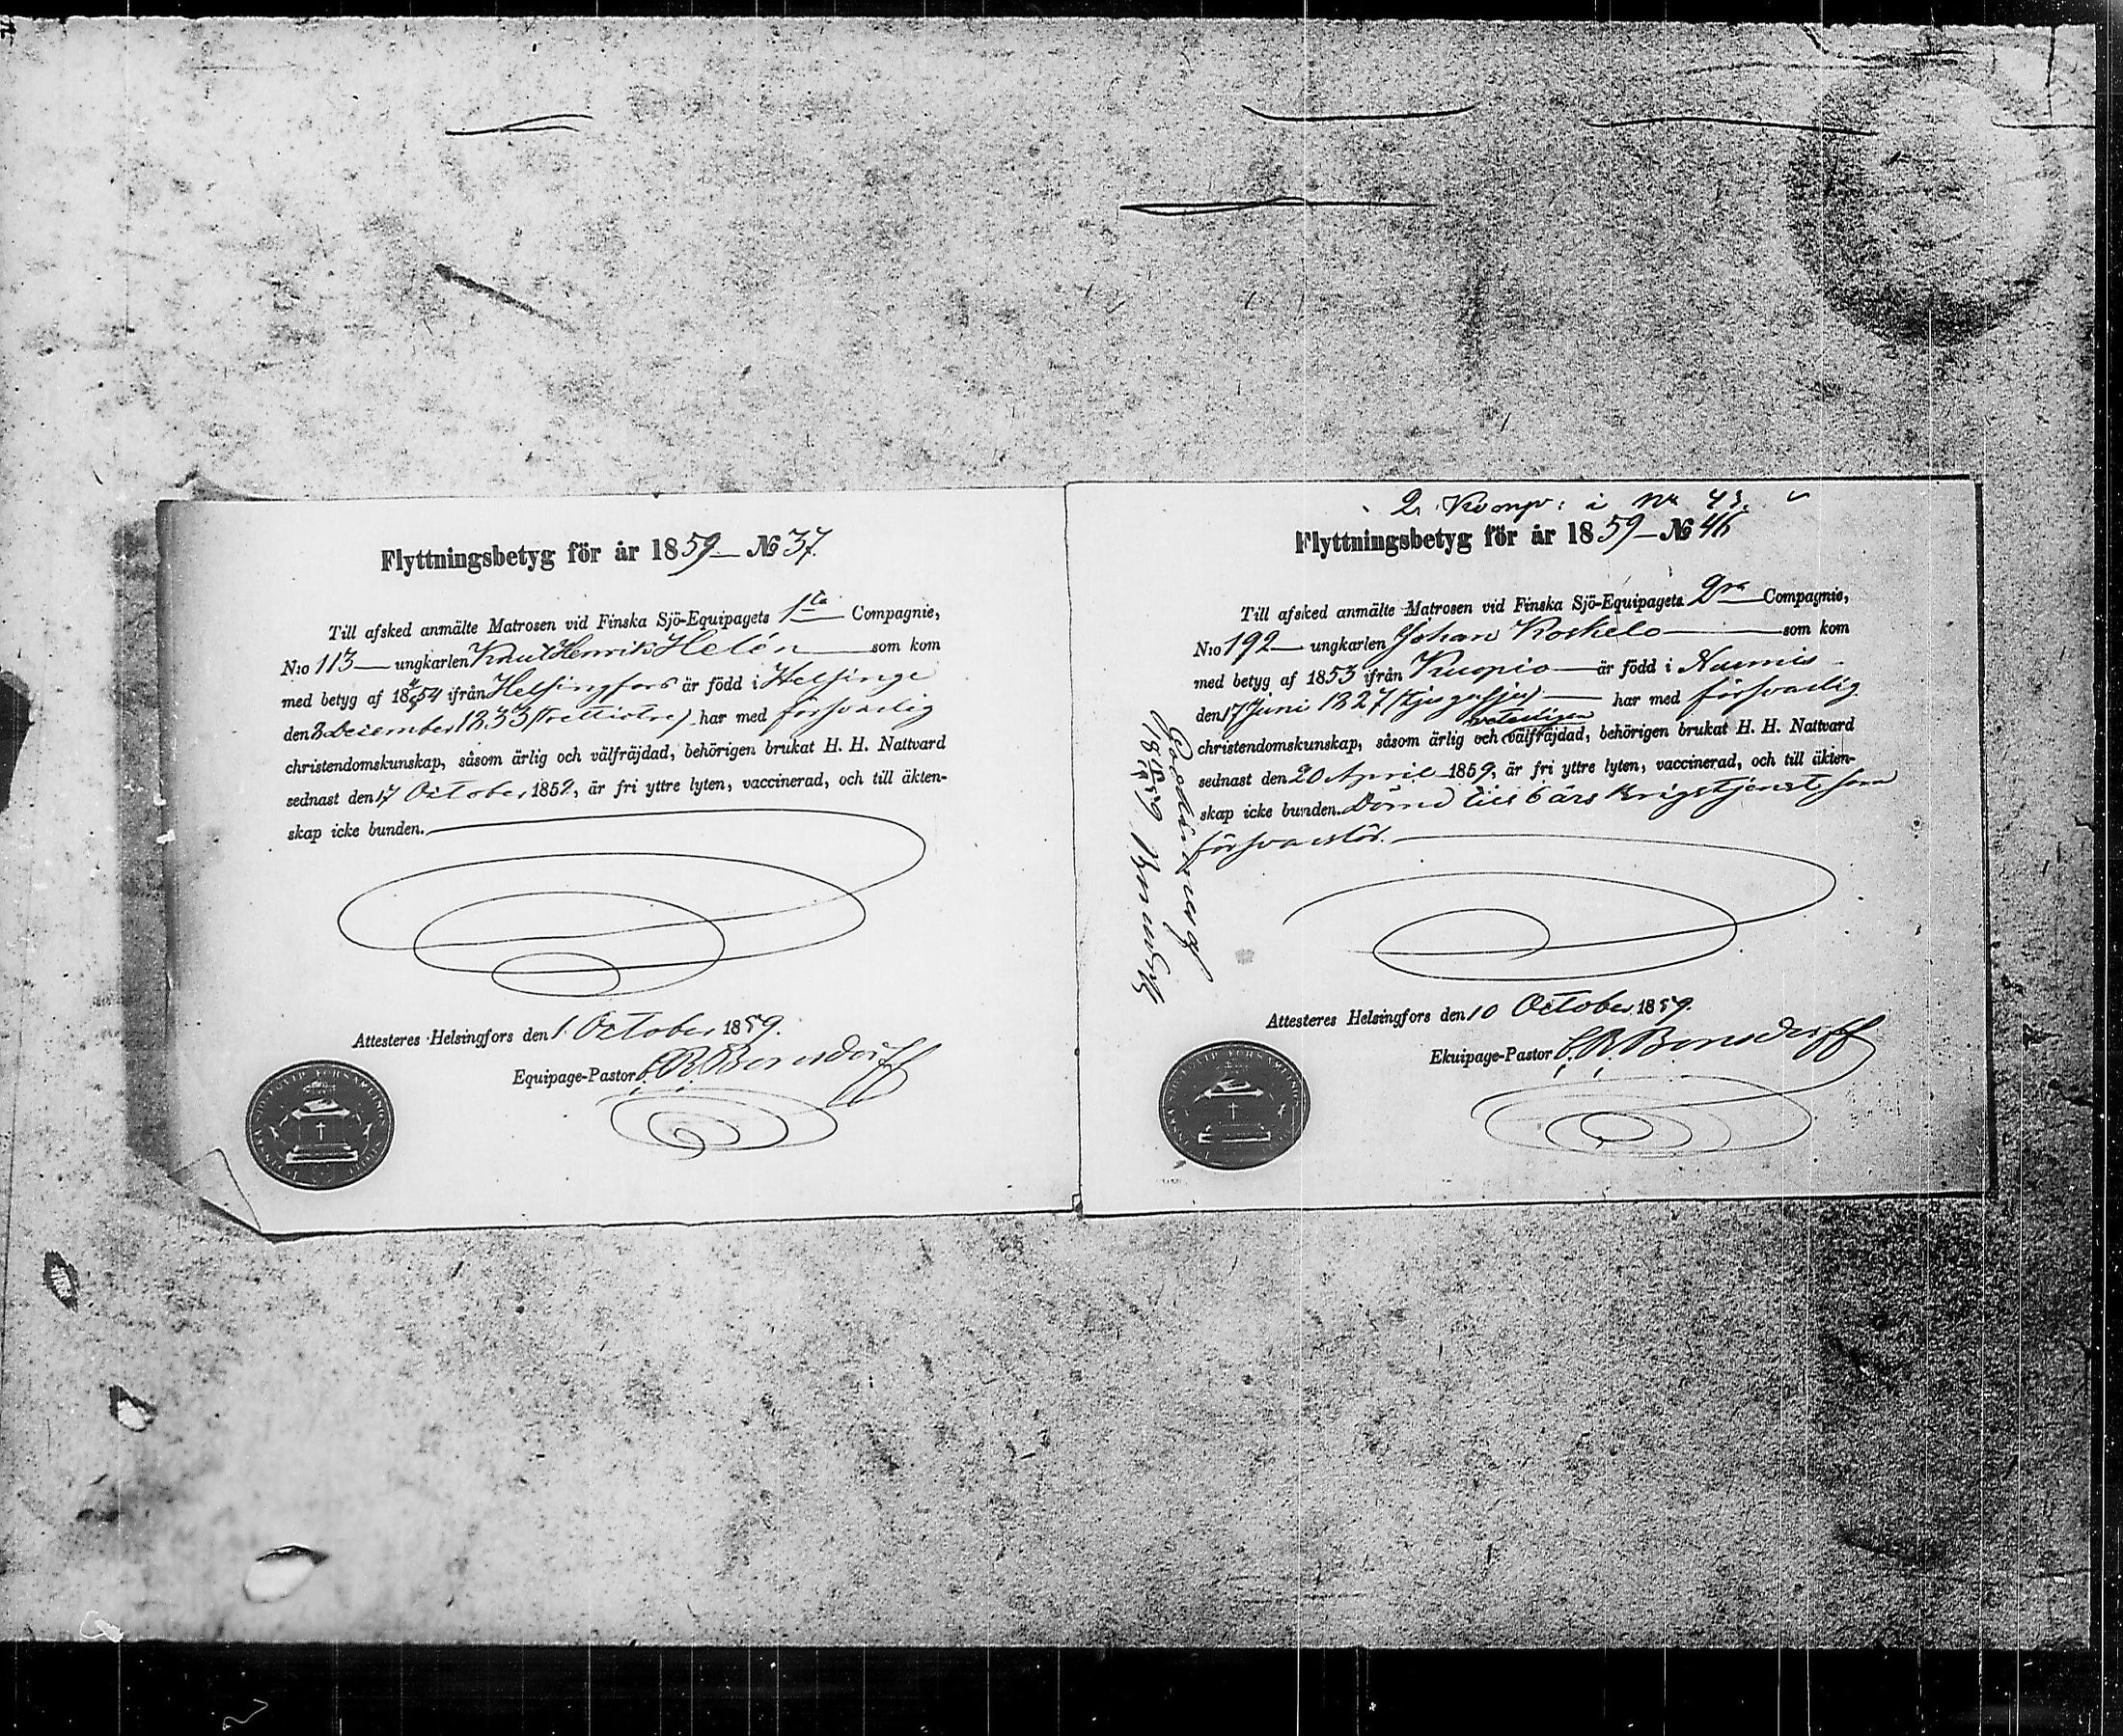 Flyttningsbetyg för år 1859 — № 37.
Till afsked anmälte Matrosen vid Finska Sjö-Equipagets 1sta Compagnie,
N:o 113 — ungkarlen Knut Henrik Helén — som kom
med betyg af 1854 ifrån Helsingfors är född i Helsinge
den 3 December 1833 (trettiotre) har med försvarlig
christendomskunskap, såsom ärlig och välfräjdad, behörigen brukat H. H. Nattvard
sednast den 17 October 1859, är fri yttre lyten, vaccinerad, och till äkten-
skap icke bunden.
Attesteres Helsingfors den 1 October 1859.
Equipage-Pastor C. R. Bonsdorff
2. Komp: i № 43.
Flyttningsbetyg för år 1859 — № 46
Till afsked anmälte Matrosen vid Finska Sjö-Equipagets 2dra Compagnie,
N:o 192 — ungkarlen Johan Koskelo — som kom
med betyg af 1853 ifrån Kuopio — är född i Nurmis
den 17 Juni 1827 (tjugusju) — har med försvarlig
christendomskunskap, såsom ärlig och välfräjdad, behörigen brukat H. H. Nattvard
sednast den 20 April 1859, är fri yttre lyten, vaccinerad, och till äkten-
skap icke bunden. Dömd till 6 års Krigstjenst som
försvarslös.
Attesteres Helsingfors den 10 October 1859.
Ekuipage-Pastor C. R. Bonsdorff